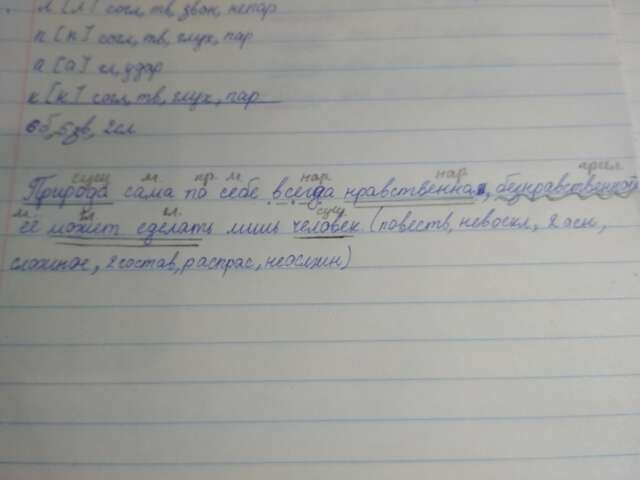 л [л] согл, тв, звон, непар
п [п] согл, тв, глух, пар
а [а] гл, удар
к [к] согл, тв, глух, пар
6б, 5зв, 2сл
сущ м. пр. м. нар нар прил
Природа сама по себе всегда нравственна, безнравственной
м. гл. гл. сущ
её может сделать лишь человек (повеств, невоскл, 2 осн,
сложное, 2состав, распрас, неослжн)